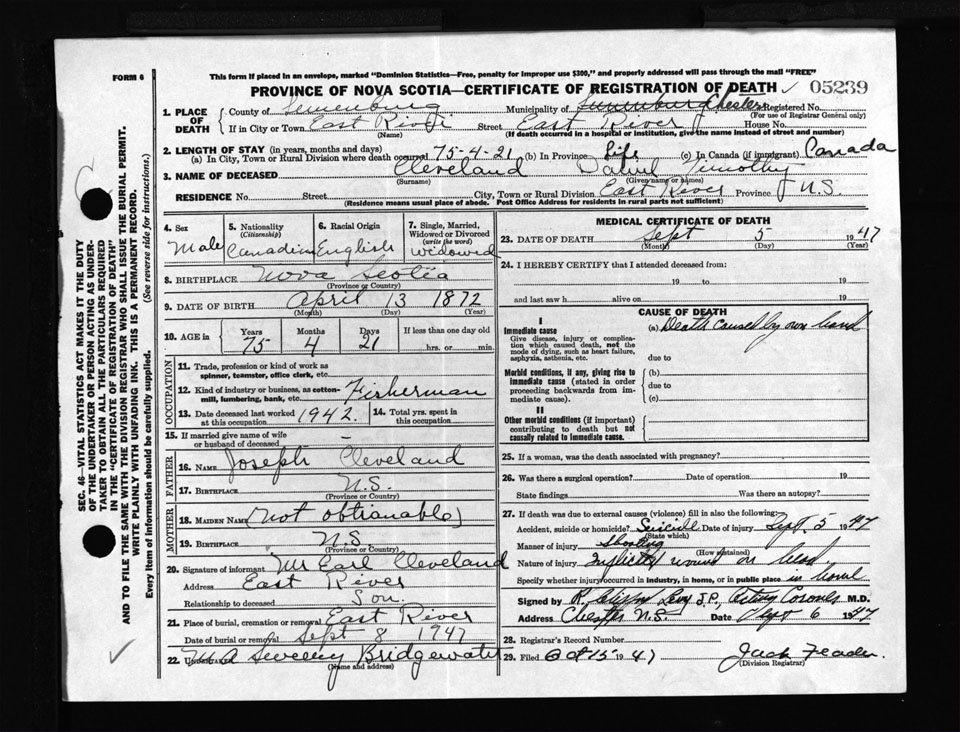 FORM 6
This form if placed in an envelope, marked "Dominion Statistics—Free, penalty for improper use $300," and properly addressed will pass through the mail "FREE"
PROVINCE OF NOVA SCOTIA—CERTIFICATE OF REGISTRATION OF DEATH ✓ 05239
1. PLACE OF DEATH
County of Lunenburg Municipality of Lunenburg Chester Registered No.
(For use of Registrar General only)
If in City or Town East River Street East River House No.
(Name) (If death occurred in a hospital or institution, give the name instead of street and number)
2. LENGTH OF STAY (in years, months and days)
(a) In City, Town or Rural Division where death occurred 75-4-21 (b) In Province Life (c) In Canada (if immigrant) Canada
3. NAME OF DECEASED Cleveland Timothy
(Surname) (Given name or names)
RESIDENCE No. Street: City, Town or Rural Division East River Province N.S.
(Residence means usual place of abode. Post Office Address for residents in rural parts not sufficient)
4. Sex Male
5. Nationality (Citizenship) Canadian
6. Racial Origin English
7. Single, Married, Widowed or Divorced (write the word) Widowed
8. BIRTHPLACE Nova Scotia
(Province or Country)
9. DATE OF BIRTH April 13 1872
(Month) (Day) (Year)
10. AGE in Years 75 Months 4 Days 21 If less than one day old hrs. or min.
OCCUPATION
11. Trade, profession or kind of work as spinner, teamster, office clerk, etc.
12. Kind of industry or business, as cotton-mill, lumbering, bank, etc. Fisherman
13. Date deceased last worked at this occupation 1942. 14. Total yrs. spent in this occupation
15. If married give name of wife or husband of deceased –
FATHER
16. NAME Joseph Cleveland
17. BIRTHPLACE N.S.
(Province or Country)
MOTHER
18. MAIDEN NAME (not obtianable)
19. BIRTHPLACE N.S.
(Province or Country)
20. Signature of informant Mr Earl Cleveland
Address East River
Relationship to deceased Son.
21. Place of burial, cremation or removal East River
Date of burial or removal Sept 8 1947
22. UNDERTAKER M A Sweeny Bridgewater
(Name and address)
MEDICAL CERTIFICATE OF DEATH
23. DATE OF DEATH Sept 5 1947
(Month) (Day) (Year)
24. I HEREBY CERTIFY that I attended deceased from:
19 to 19
and last saw h alive on 19
CAUSE OF DEATH
I
Immediate cause
Give disease, injury or complication which caused death, not the mode of dying, such as heart failure, asphyxia, asthenia, etc.
(a) Death caused by own hand
due to
Morbid conditions, if any, giving rise to immediate cause (stated in order proceeding backwards from immediate cause).
(b)
due to
(c)
II
Other morbid conditions (if important) contributing to death but not causally related to immediate cause.
25. If a woman, was the death associated with pregnancy?
26. Was there a surgical operation? Date of operation 19
State findings Was there an autopsy?
27. If death was due to external causes (violence) fill in also the following:
Accident, suicide or homicide? Suicide Date of injury Sept. 5 1947
(State which)
Manner of injury Shooting
(How sustained)
Nature of injury Inflicted wound on head.
Specify whether injury occurred in industry, in home, or in public place in home
Signed by R. J.P., Acting Coroner M.D.
Address Chester N.S. Date Sept 6 1947
28. Registrar's Record Number
29. Filed Oct 15 1947 Jack
(Division Registrar)
SEC. 46—VITAL STATISTICS ACT MAKES IT THE DUTY
OF THE UNDERTAKER OR PERSON ACTING AS UNDER-
TAKER TO OBTAIN ALL THE PARTICULARS REQUIRED
IN THE "CERTIFICATE OF REGISTRATION OF DEATH"
AND TO FILE THE SAME WITH THE DIVISION REGISTRAR WHO SHALL ISSUE THE BURIAL PERMIT.
WRITE PLAINLY WITH UNFADING INK. THIS IS A PERMANENT RECORD.
Every item of information should be carefully supplied. (See reverse side for instructions.)